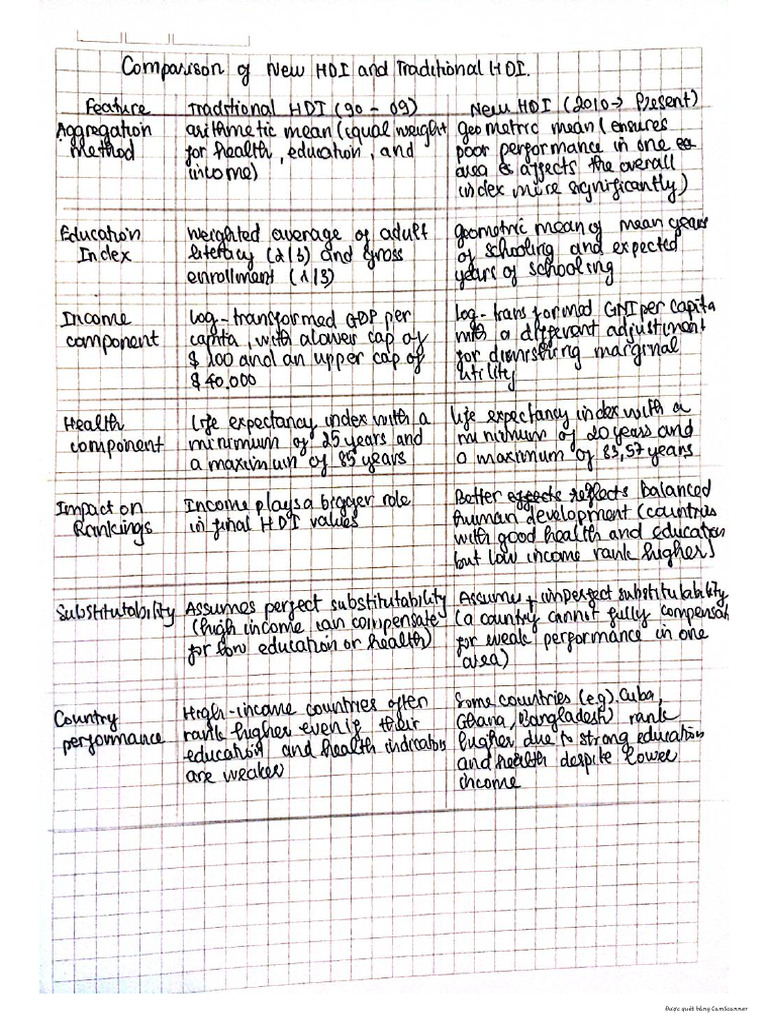 Comparison of New HDI and Traditional HDI.
Feature
Traditional HDI (90 - 09)
New HDI (2010 → Present)
Aggregation
method
arithmetic mean (equal weight
for health, education, and
income)
geometric mean (ensures
poor performance in one
area affects the overall
index more significantly)
Education
Index
Weighted average of adult
literacy (2/3) and gross
enrollment (1/3)
Geometric mean of mean years
of schooling and expected
years of schooling
Income
component
Log-transformed GDP per
capita, with a lower cap of
$ 100 and an upper cap of
$ 40.000
Log-transformed GNI per capita
with a different adjustment
for diminishing marginal
utility
Health
component
Life expectancy index with a
minimum of 25 years and
a maximum of 85 years
Life expectancy index with a
minimum of 20 years and
a maximum of 83,57 years
Impact on
Rankings
Income plays a bigger role
in final HDI values
Better reflects balanced
human development (countries
with good health and education
but low income rank higher)
Substitutability
Assumes perfect substitutability
(high income can compensate
for low education or health)
Assume imperfect substitutability
(a country cannot fully compensate
for weak performance in one
area)
Country
performance
High-income countries often
rank higher even if their
education and health indicators
are weaker
Some countries (e.g). Cuba,
Ghana, Bangladesh) rank
higher due to strong education
and health despite lower
income
Được quét bằng CamScanner